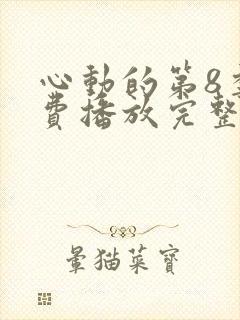 心動的第8季
費播放完整
暈猫菜寶